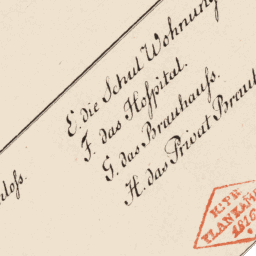 E. die Schul Wohnung
F. das Hospital.
G. das Brauhauß.
H. das Privat Brau
K: PR:
PLANKAM
1816